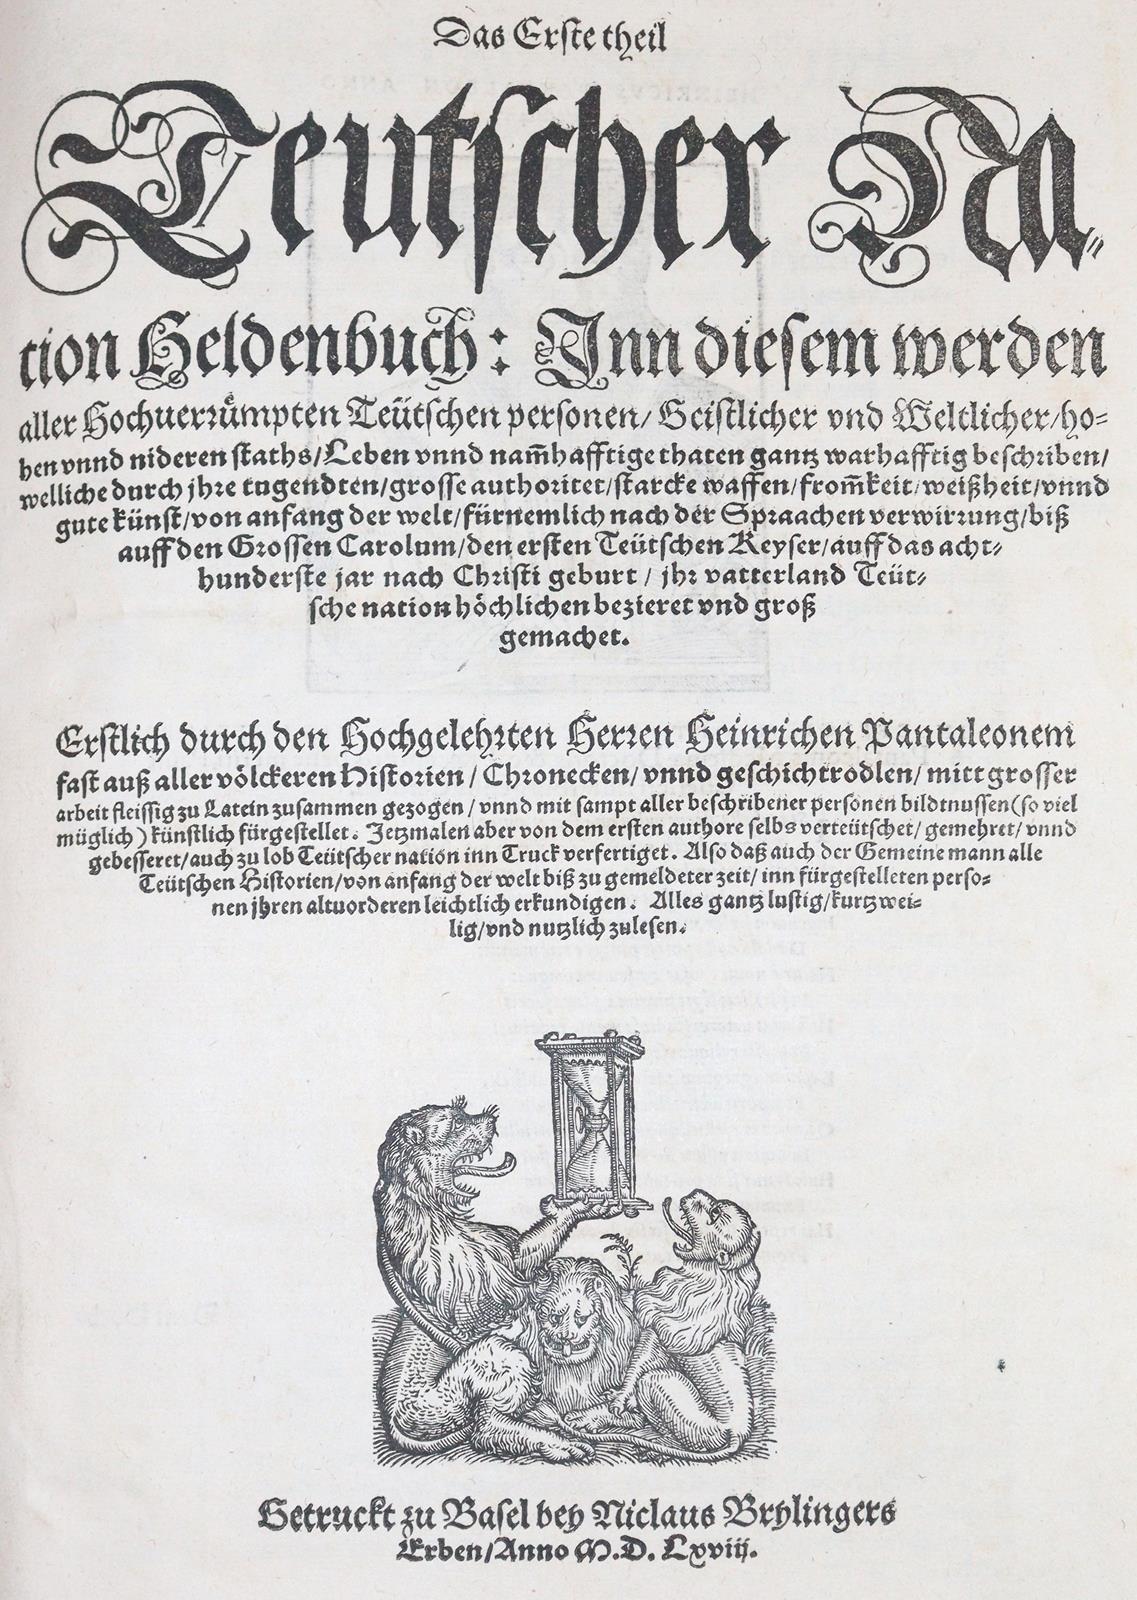 Das Erste theil
Teutscher Na⸗
tion Heldenbuch: Inn diesem werden
aller Hochuerrümpten Teütschen personen/ Geistlicher vnd Weltlicher/ho⸗
hen vnnd nideren staths/Leben vnnd nam̃hafftige thaten gantz warhafftig beschriben/
welliche durch jhre tugendten/grosse authoritet/starcke waffen/from̃keit/weißheit/vnnd
gute künst/von anfang der welt/fürnemlich nach der Spraachen verwirrung/biß
auff den Grossen Carolum/den ersten Teütschen Keyser/auff das acht⸗
hunderste jar nach Christi geburt / jhr vatterland Teüt⸗
sche nation höchlichen bezieret vnd groß
gemachet.
Erstlich durch den Hochgelehrten Herren Heinrichen Pantaleonem
fast auß aller völckeren Historien / Chronecken/ vnnd geschichtrodlen/ mitt grosser
arbeit fleissig zu Latein zusammen gezogen / vnnd mit sampt aller beschribener personen bildtnussen(so viel
müglich) künstlich fürgestellet. Jetzmalen aber von dem ersten authore selbs verteütschet/ gemehret/ vnnd
gebesseret/auch zu lob Teütscher nation inn Truck verfertiget. Also daß auch der Gemeine mann alle
Teütschen Historien/von anfang der welt biß zu gemeldeter zeit/ inn fürgestelleten perso⸗
nen jhren altuorderen leichtlich erkundigen. Alles gantz lustig/kurtzwei⸗
lig/vnd nutzlich zulesen.
Getruckt zu Basel bey Niclaus Brylingers
Erben/Anno M.D.Lxviij.